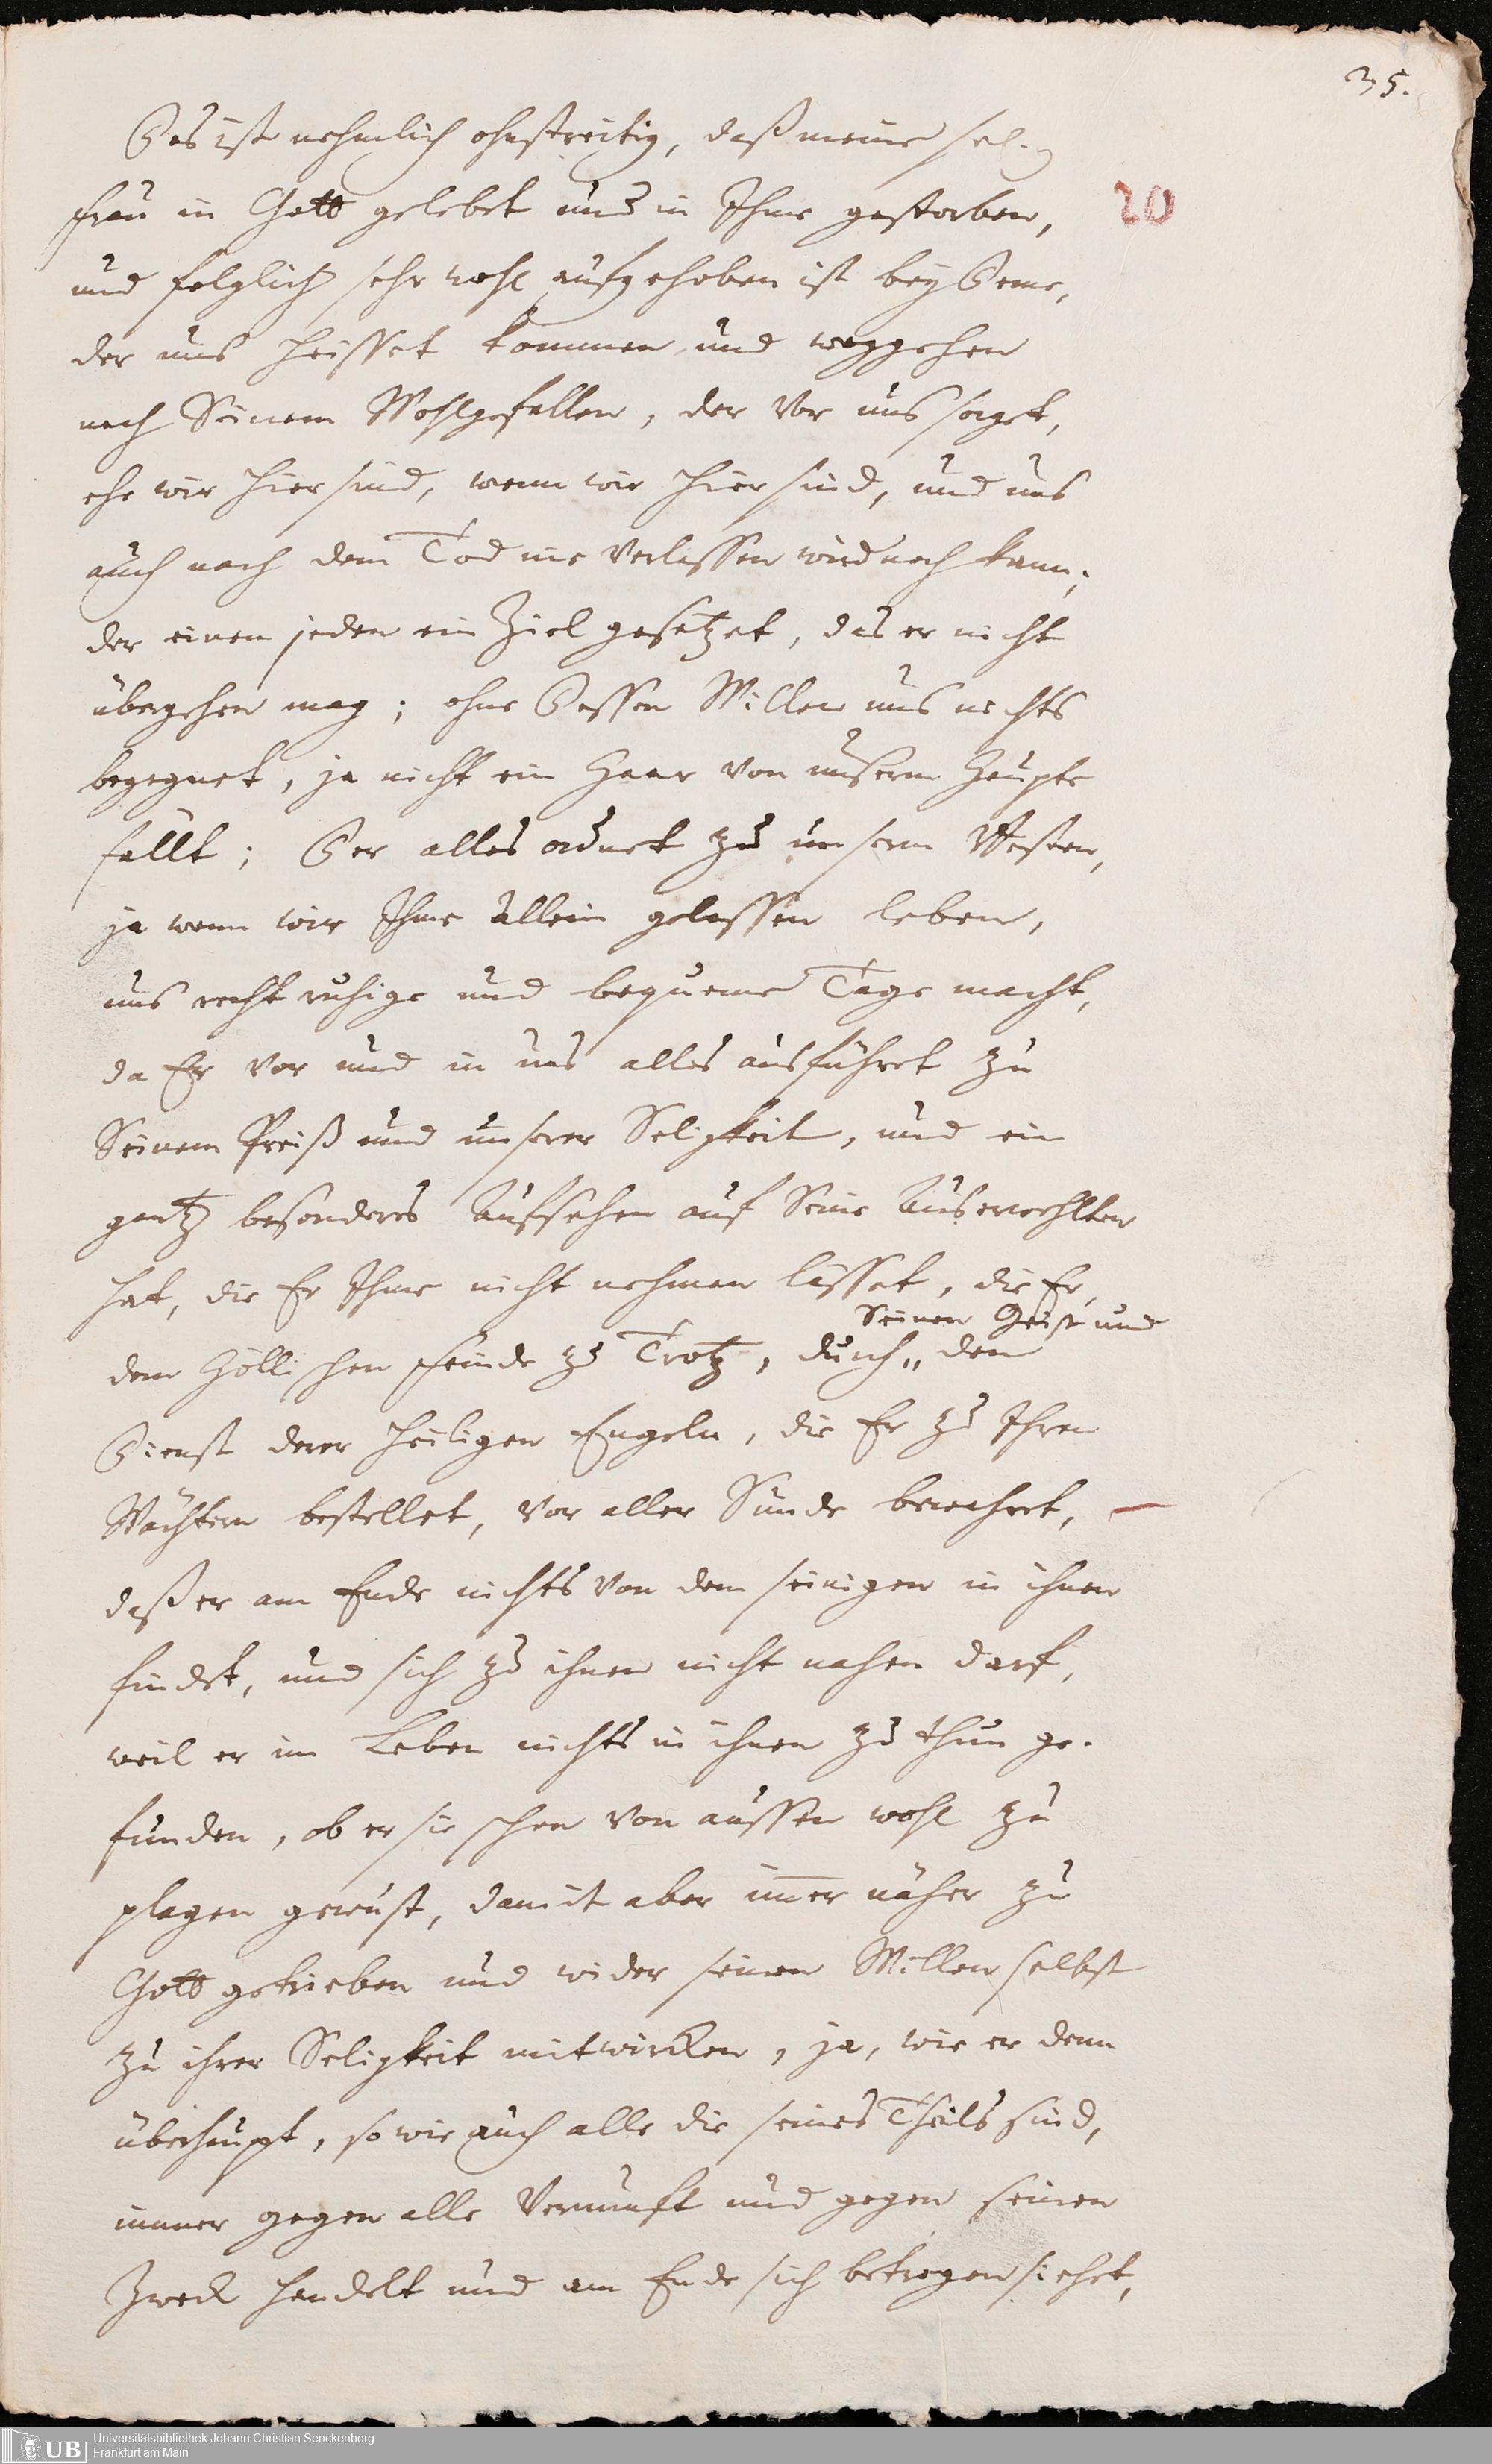 35.
Es ist nehmlich ohnstreitig, daß meine sel.
Frau in Gott gelebet und in Ihme gestorben,
20
und folglich sehr wohl aufgehoben ist bey Deme,
der uns heisset kommen und weggehen
nach Seinem Wohlgefallen, der vor uns sorget,
ehe wir hier sind, wenn wir hier sind, und uns
auch nach dem Tod nie verlassen wird noch kann;
der einem jeden ein Ziel gesetzet, das er nicht
übergehen mag; ohne Dessen Willen uns nichts
begegnet, ja nicht ein Haar von unserm Haupte
fällt; Der alles ordnet zu unserm Besten,
ja wenn wir Ihme allein gelassen leben,
uns recht ruhige und bequeme Tage macht,
da Er vor und in uns alles ausführet zu
Seinem Preiß und unserer Seligkeit, und ein
gantz besonderes Aufsehen auf Seine Auserwehlten
hat, die Er Ihme nicht nehmen lässet, die Er,
Seinen Geist und
dem Höllischen Feinde zu Trotz, durch „ den
Dienst derer Heiligen Engeln, die Er zu Ihren
Wächtern bestellet, vor aller Sünde bewahret,
daß er am Ende nichts von dem seinigen in ihnen
findet, und sich zu ihnen nicht nahen darf,
weil er im Leben nichts in ihnen zu thun ge-
funden, ob er sie schon von aussen wohl zu
plagen gewust, damit aber im̅er näher zu
Gott getrieben und wider seinen Willen selbst
zu ihrer Seligkeit mitwircken, ja, wie er denn
überhaupt, so wie auch alle die seines Theils sind,
immer gegen alle Vernunft und gegen seinen
Zweck handelt und am Ende sich betrogen siehet,
UB
Universitätsbibliothek Johann Christian Senckenberg
Frankfurt am Main